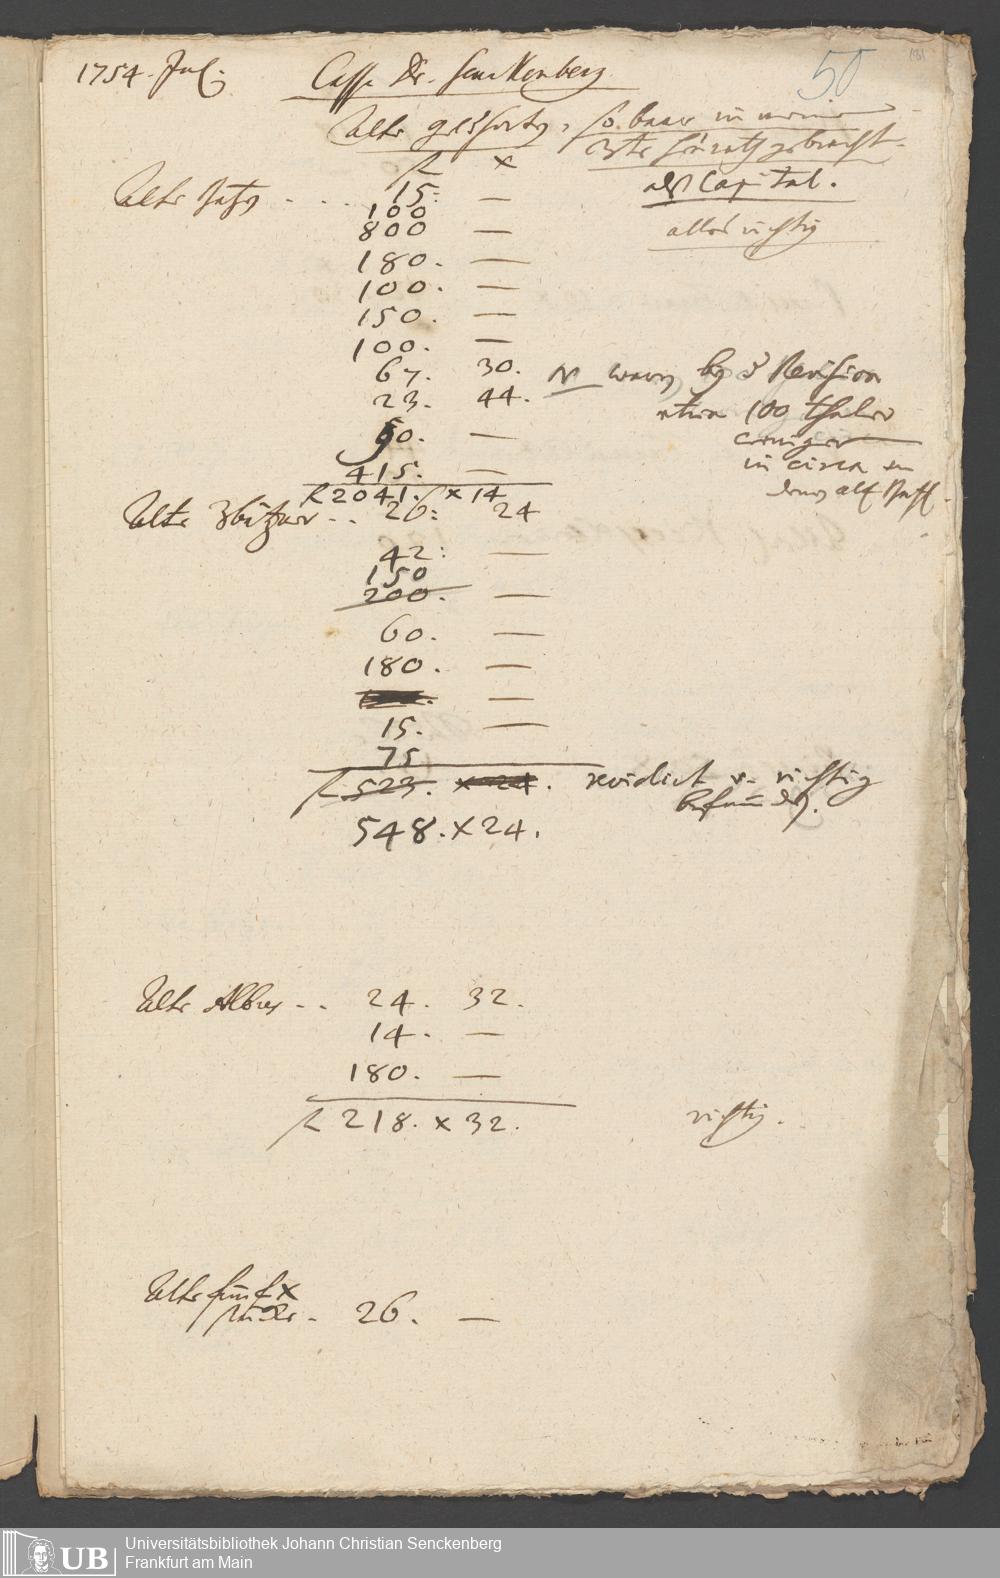 1754. Jul. Cassa Dr. Senckenberg 50
Alte geldsorten, so baar in meine
3te heürath gebracht
fl x als Capital.
Alte Batzen . . . 15: —
100
800 — alles richtig
180. —
100. —
150. —
100. —
67. 30. NB waren bey d Revision
23. 44. etwa 100 thaler
50. — weniger
415. — in circa an
fl 2041. x 14 denen alt
Alte 3bätzner . . 26: 24
42: —
150
200. —
60. —
180. —
—
15. —
75
fl 523. x 24. revidirt u. richtig
befunden.
548. x 24.
Alte Albus . . 24. 32.
14. —
180. —
fl 218. x 32. richtig.
Alte fünf x
stücker . 26. —
Universitätsbibliothek Johann Christian Senckenberg
Frankfurt am Main
UB